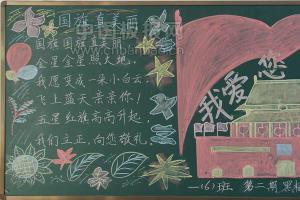 国旗真美丽
国旗国旗真美丽,
金星金星照大地,
我愿变成一朵小白云,
飞上蓝天亲亲你!
五星红旗高高升起,
我们立正,向您敬礼。
我爱您
一(6)班 第二期黑板